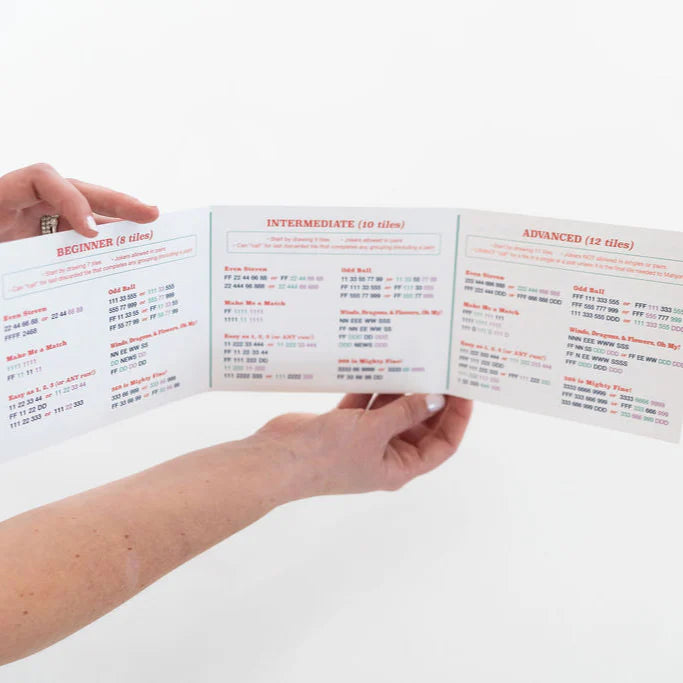 BEGINNER (8 tiles)
• Start by drawing 7 tiles • Jokers allowed in pairs
• Can "call" for last discarded tile that completes any grouping (including a pair)
Even Steven
22 44 66 88 or 22 44 66 88
FFFF 2468
Make Me a Match
1111 1111
FF 11 11 11
Easy as 1, 2, 3 (or ANY run!)
11 22 33 44 or 11 22 33 44
FF 11 22 DD
11 222 333 or 111 22 333
Odd Ball
111 33 555 or 111 33 555
555 77 999 or 555 77 999
FF 11 33 55 or FF 11 33 55
FF 55 77 99 or FF 55 77 99
Winds, Dragons, & Flowers, Oh My!
NN EE WW SS
DD NEWS DD
FF DD DD DD
369 is Mighty Fine!
333 66 999 or 333 66 999
FF 33 66 99 or FF 33 66 99
INTERMEDIATE (10 tiles)
• Start by drawing 9 tiles • Jokers allowed in pairs
• Can "call" for last discarded tile that completes any grouping (including a pair)
Even Steven
FF 22 44 66 88 or FF 22 44 66 88
222 44 666 88 or 222 44 666 88
Make Me a Match
FF 1111 1111
1111 11 1111
Easy as 1, 2, 3 (or ANY run!)
11 222 33 444 or 11 222 33 444
FF 11 22 33 44
FF 111 222 DD
111 222 11 222
111 2222 333 or 111 2222 333
Odd Ball
11 33 55 77 99 or 11 33 55 77 99
FF 111 33 555 or FF 111 33 555
FF 555 77 999 or FF 555 77 999
Winds, Dragons, & Flowers, Oh My!
NN EEE WW SSS
FF NN EE WW SS
FF DDD DD DDD
FF DD NEWS DD
369 is Mighty Fine!
3333 66 9999 or 3333 66 9999
FF 33 66 99 DD
ADVANCED (12 tiles)
• Start by drawing 11 tiles • Jokers NOT allowed in singles or pairs
Even Steven
222 444 666 888 or 222 444 666 888
FFF 222 444 DDD or FFF 666 888 DDD
Make Me a Match
FFF 111 111 111
Easy as 1, 2, 3 (or ANY run!)
Odd Ball
FFF 111 333 555 or FFF 111 333 555
FFF 555 777 999 or FFF 555 777 999
111 333 555 DDD or 111 333 555 DDD
Winds, Dragons, & Flowers, Oh My!
NNN EEE WWW SSS
FF NN SS DDD DDD or FF EE WW DDD DDD
FF N EE WWW SSSS
FFF DDD DDD DDD
369 is Mighty Fine!
3333 6666 9999 or 3333 6666 9999
FFF 333 666 999 or FFF 333 666 999
333 666 999 DDD or 333 666 999 DDD